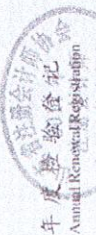 年度检验登记
Annual Renewal Registration
注册会计师协会